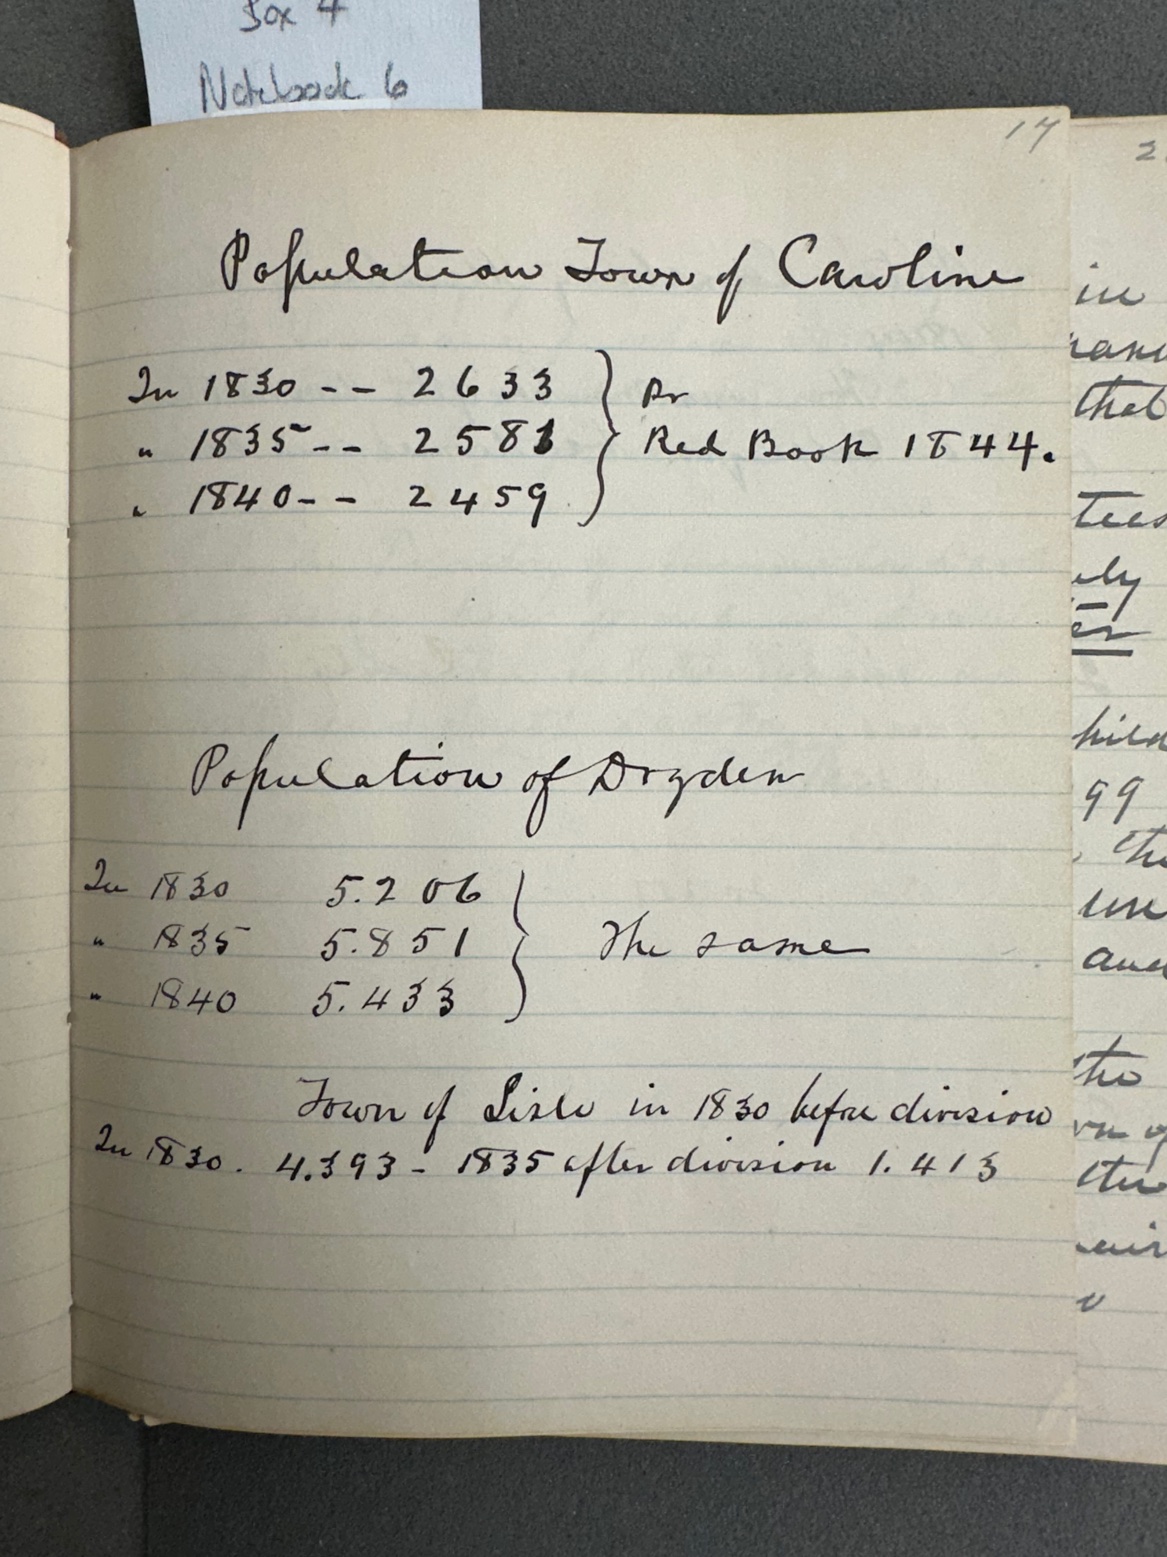 Box 4
Notebook 6
17
Population Town of Caroline
In 1830 -- 2633
Pr
" 1835 -- 2581
Red Book 1844.
" 1840 -- 2459
Population of Dryden
In 1830 5.206
" 1835 5.851
The same
" 1840 5.433
Town of Lisle in 1830 before division
In 1830. 4.393 - 1835 after division 1.413
in
that
ely
99
the